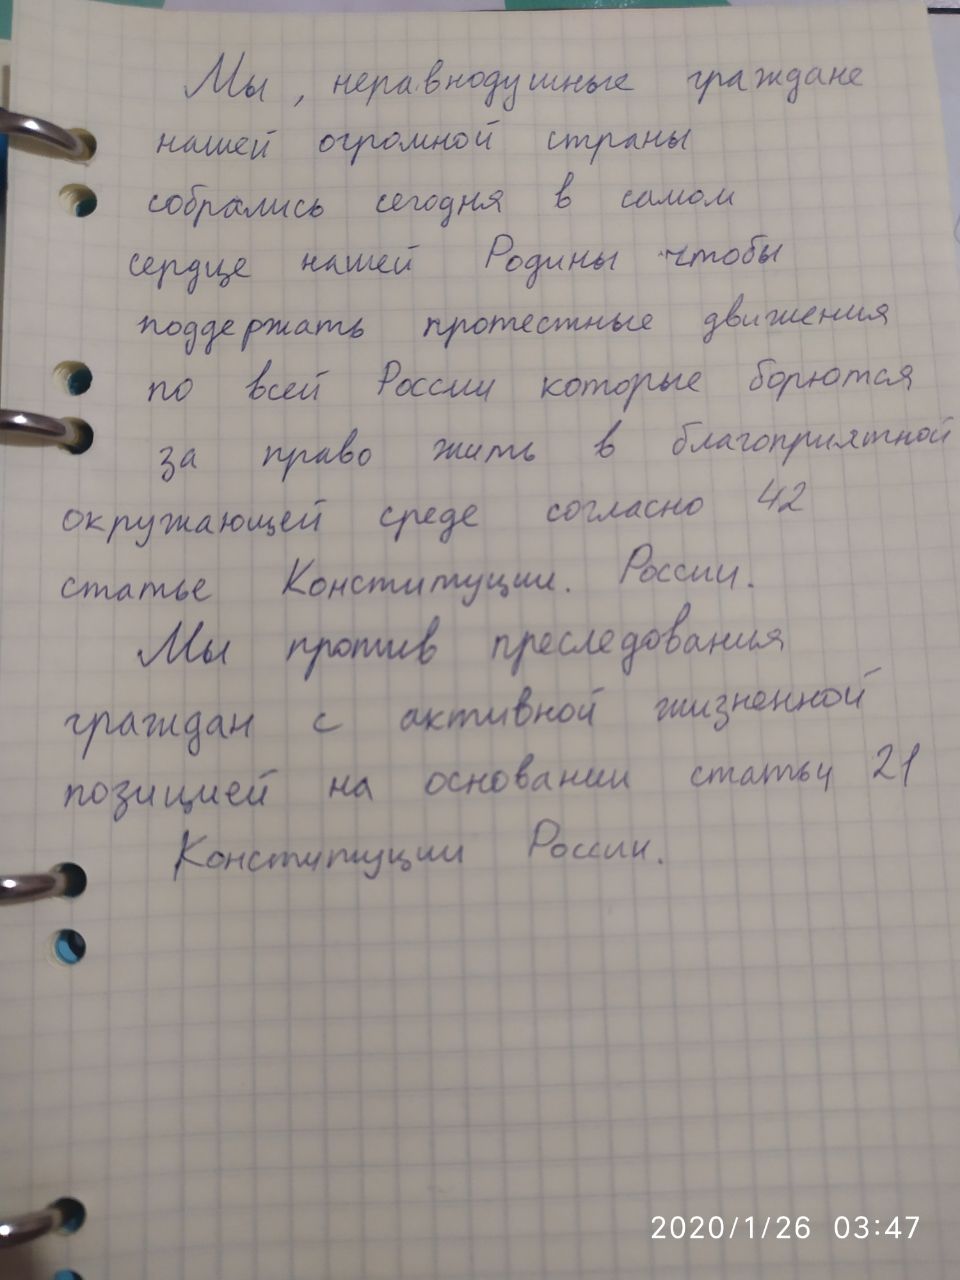 Мы, неравнодушные граждане
нашей огромной страны
собрались сегодня в самом
сердце нашей Родины чтобы
поддержать протестные движения
по всей России которые борются
за право жить в благоприятной
окружающей среде согласно 42
статье Конституции. России.
Мы против преследования
граждан с активной жизненной
позицией на основании статьи 21
Конституции России.
2020/1/26 03:47